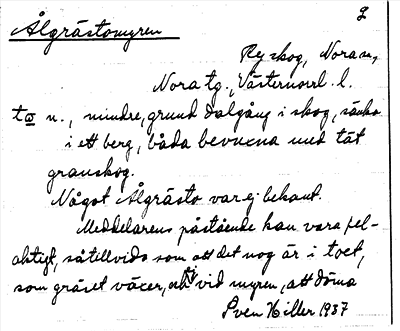 2
Ålgrästomyren
Ryskog, Nora sn,
Nora tg., Västernorrl. l.
to n., mindre, grund dalgång i skog, sänka
i ett berg, båda bevuxna med tät
granskog.
Något Ålgrästo var ej bekant.
Meddelarens påstående kan vara fel-
aktigt, såtillvida som att det nog är i toet,
som gräset växer, vid myren, att döma
Sven Hiller 1937